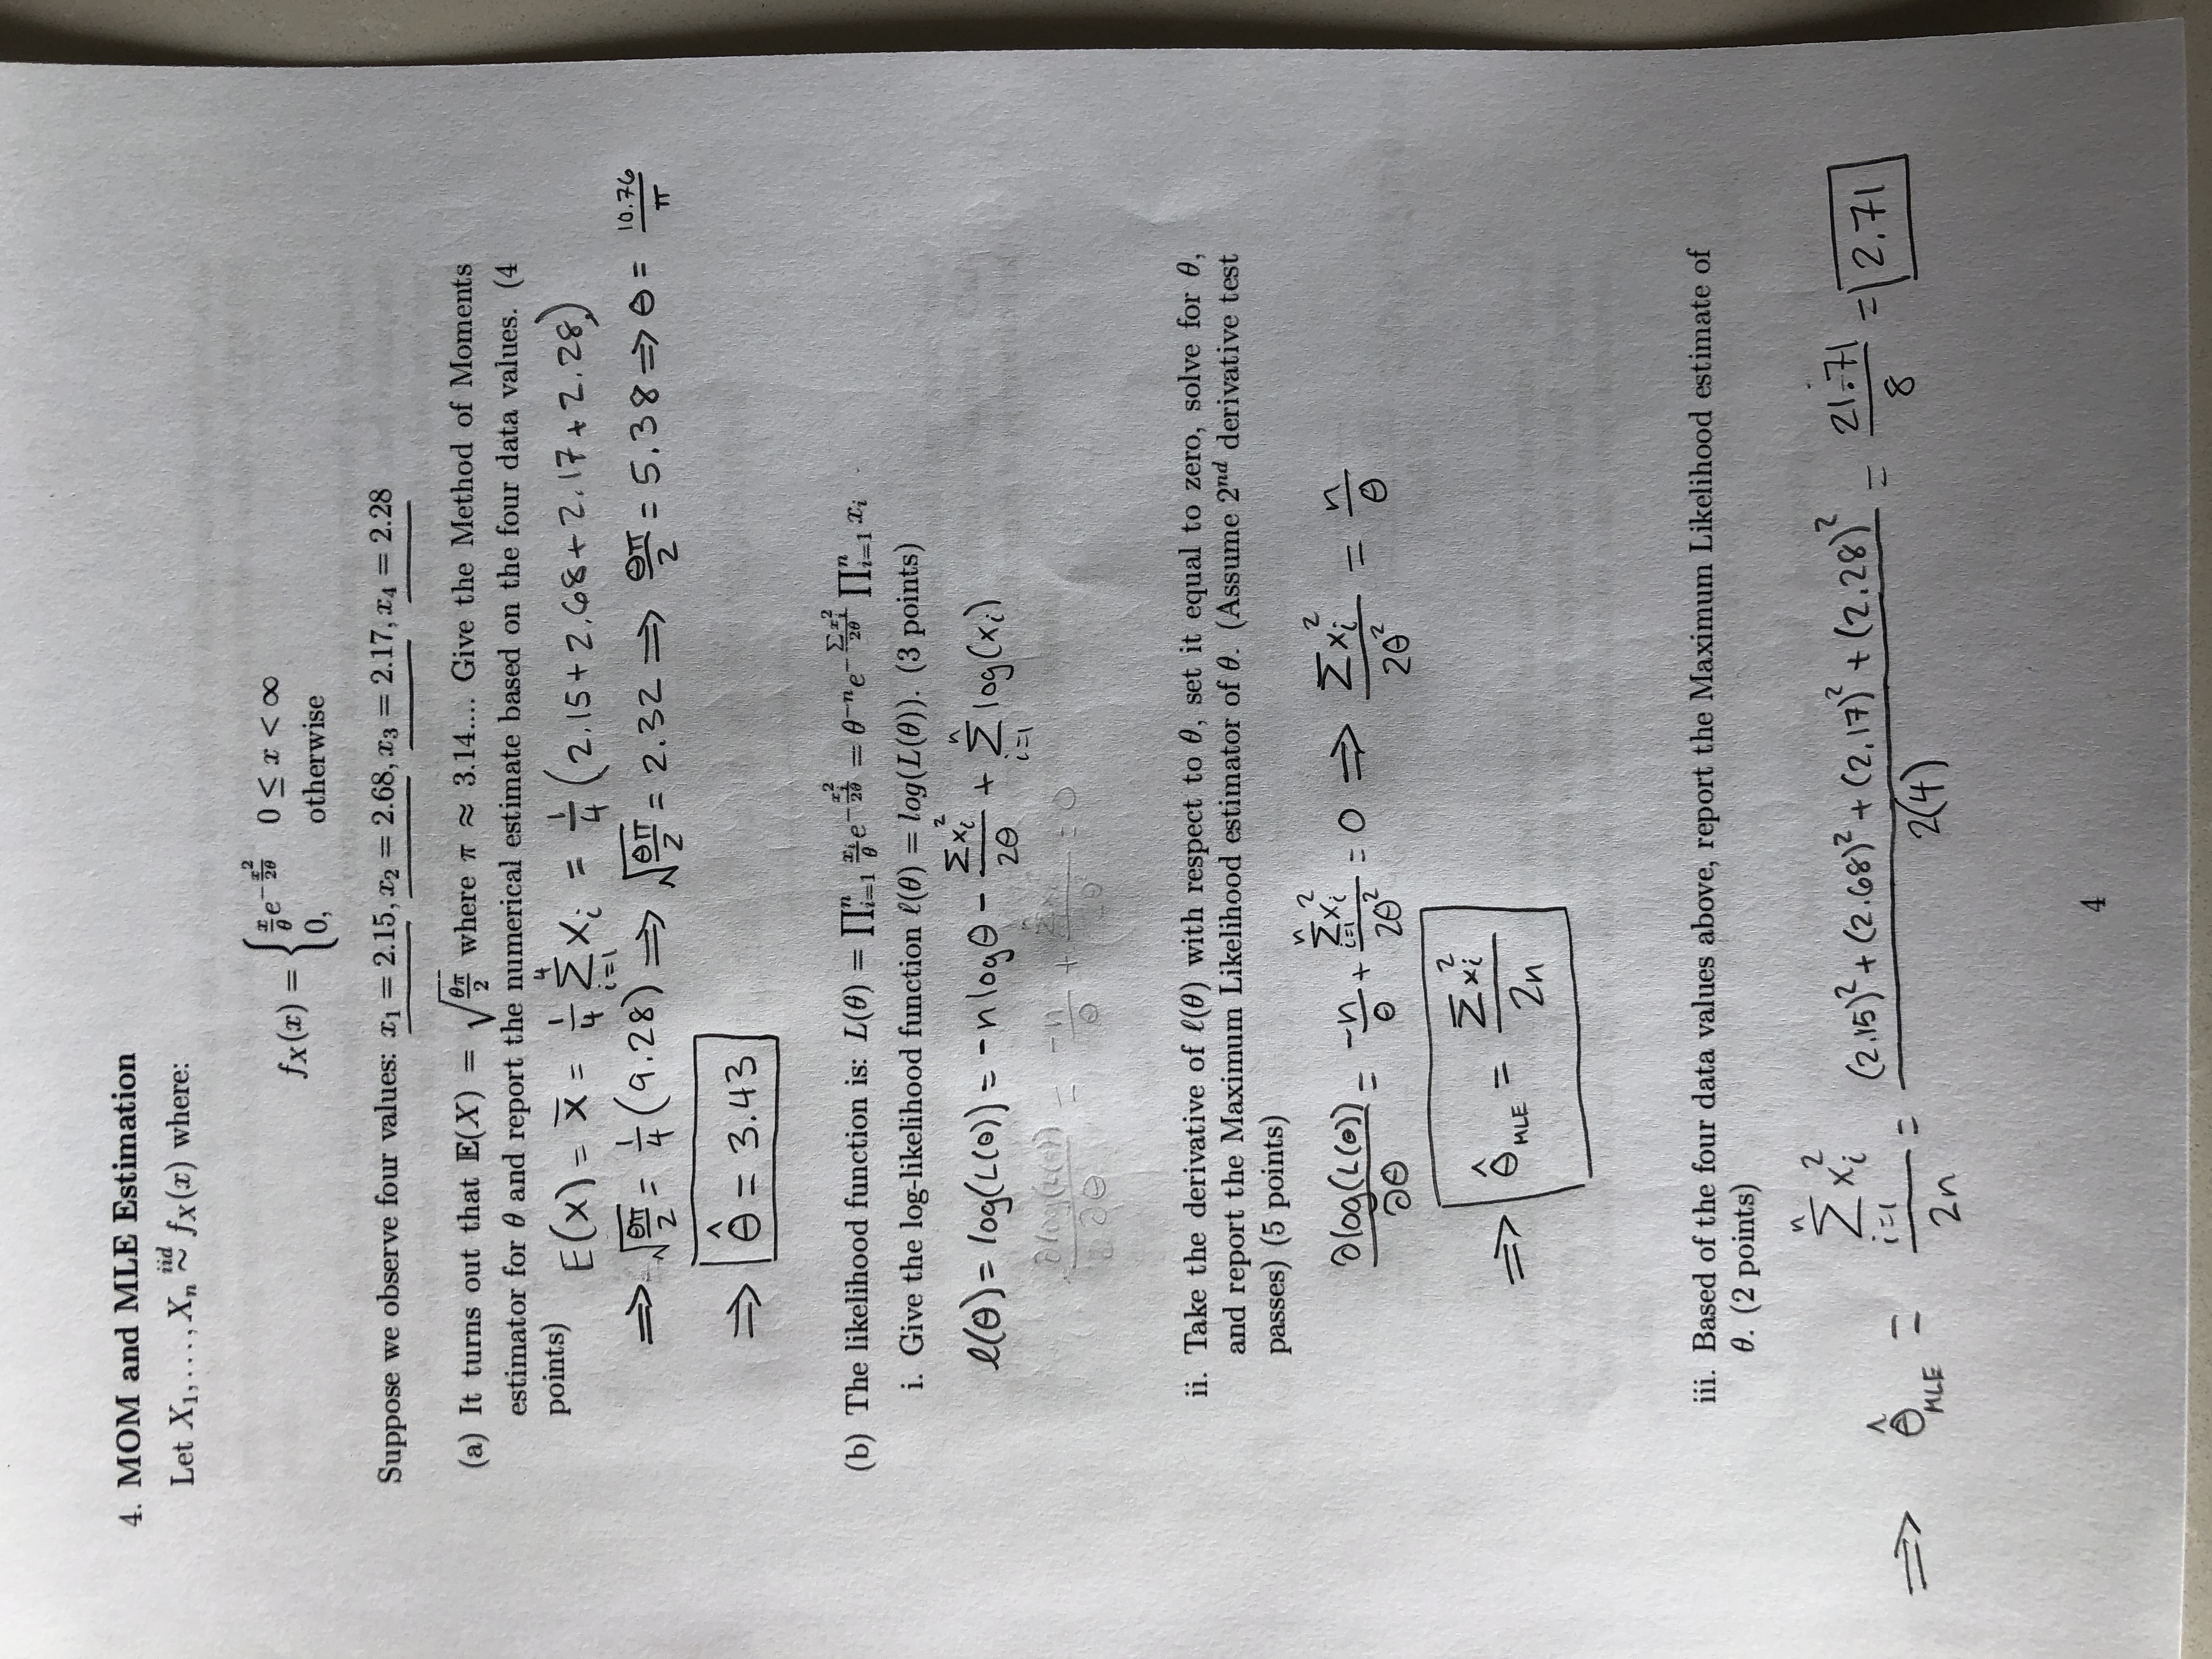 4. MOM and MLE Estimation
Let X₁, . . . , Xₙ iid ~ f_X(x) where:
f_X(x) = { x/θ e^{-x²/2θ} 0 ≤ x < ∞
0, otherwise
Suppose we observe four values: x₁ = 2.15, x₂ = 2.68, x₃ = 2.17, x₄ = 2.28
(a) It turns out that 𝔼(X) = √(θπ/2) where π ≈ 3.14.... Give the Method of Moments
estimator for θ and report the numerical estimate based on the four data values. (4
points)
E(X) = x̄ = 1/4 Σ_{i=1}^{4} Xᵢ = 1/4 (2.15 + 2.68 + 2.17 + 2.28)
⇒ √(θπ/2) = 1/4 (9.28) ⇒ √(θπ/2) = 2.32 ⇒ θπ/2 = 5.38 ⇒ θ = 10.76/π
⇒ θ̂ = 3.43
(b) The likelihood function is: L(θ) = ∏_{i=1}^{n} xᵢ/θ e^{-xᵢ²/2θ} = θ^{-n} e^{-Σxᵢ²/2θ} ∏_{i=1}^{n} xᵢ
i. Give the log-likelihood function ℓ(θ) = log(L(θ)). (3 points)
ℓ(θ) = log(L(θ)) = -n log θ - Σxᵢ²/2θ + Σ_{i=1}^{n} log(xᵢ)
∂log(L(θ))/∂θ = -n/θ + = 0
ii. Take the derivative of ℓ(θ) with respect to θ, set it equal to zero, solve for θ,
and report the Maximum Likelihood estimator of θ. (Assume 2ⁿᵈ derivative test
passes) (5 points)
∂log(L(θ))/∂θ = -n/θ + Σ_{i=1}^{n} xᵢ²/2θ² = 0 ⇒ Σxᵢ²/2θ² = n/θ
⇒ θ̂_MLE = Σxᵢ²/2n
iii. Based of the four data values above, report the Maximum Likelihood estimate of
θ. (2 points)
⇒ θ̂_MLE = Σ_{i=1}^{n} xᵢ²/2n = (2.15)² + (2.68)² + (2.17)² + (2.28)²/2(4) = 21.71/8 = 2.71
4